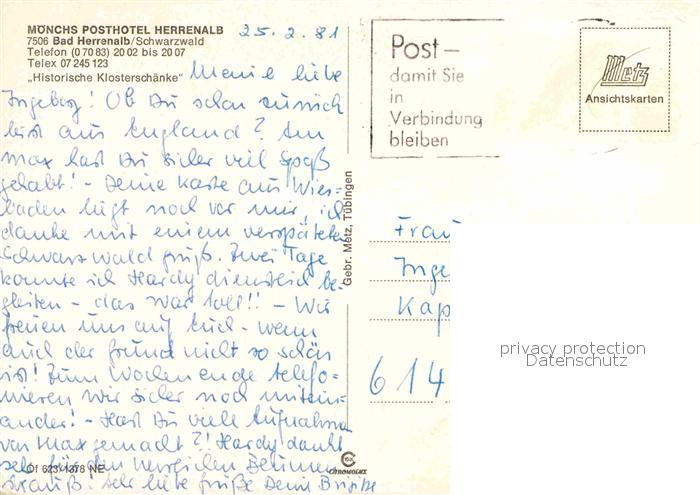 MÖNCHS POSTHOTEL HERRENALB
7506 Bad Herrenalb/Schwarzwald
Telefon (0 70 83) 20 02 bis 20 07
Telex 07 245 123
„Historische Klosterschänke"
25.2.81
Meine liebe
Ingeborg! Ob Du schon zurück
bist aus England? An
Max hast Du sicher viel Spaß
gehabt! - Deine Karte aus Wies-
baden liegt noch vor mir, ich
danke mit einem verspäteten
Schwarzwaldgruß. Zwei Tage
konnte ich Hardy dienstlich be-
gleiten - das war toll!! - Wir
freuen uns auf Euch - wenn
auch der Grund nicht so schön
ist! Zum Wochenende telefo-
nieren wir sicher noch mitein-
ander! - Hast Du viele Aufnahmen
von Max gemacht?! Hardy dankt
sehr für den
Strauß! Sehr liebe Grüße Deine Brigitte
Of 623/1378 NE
CHROMOLUX
Gebr. Metz, Tübingen
Post -
damit Sie
in
Verbindung
bleiben
Metz
Ansichtskarten
Frau
Inge
Kap
614
privacy protection
Datenschutz